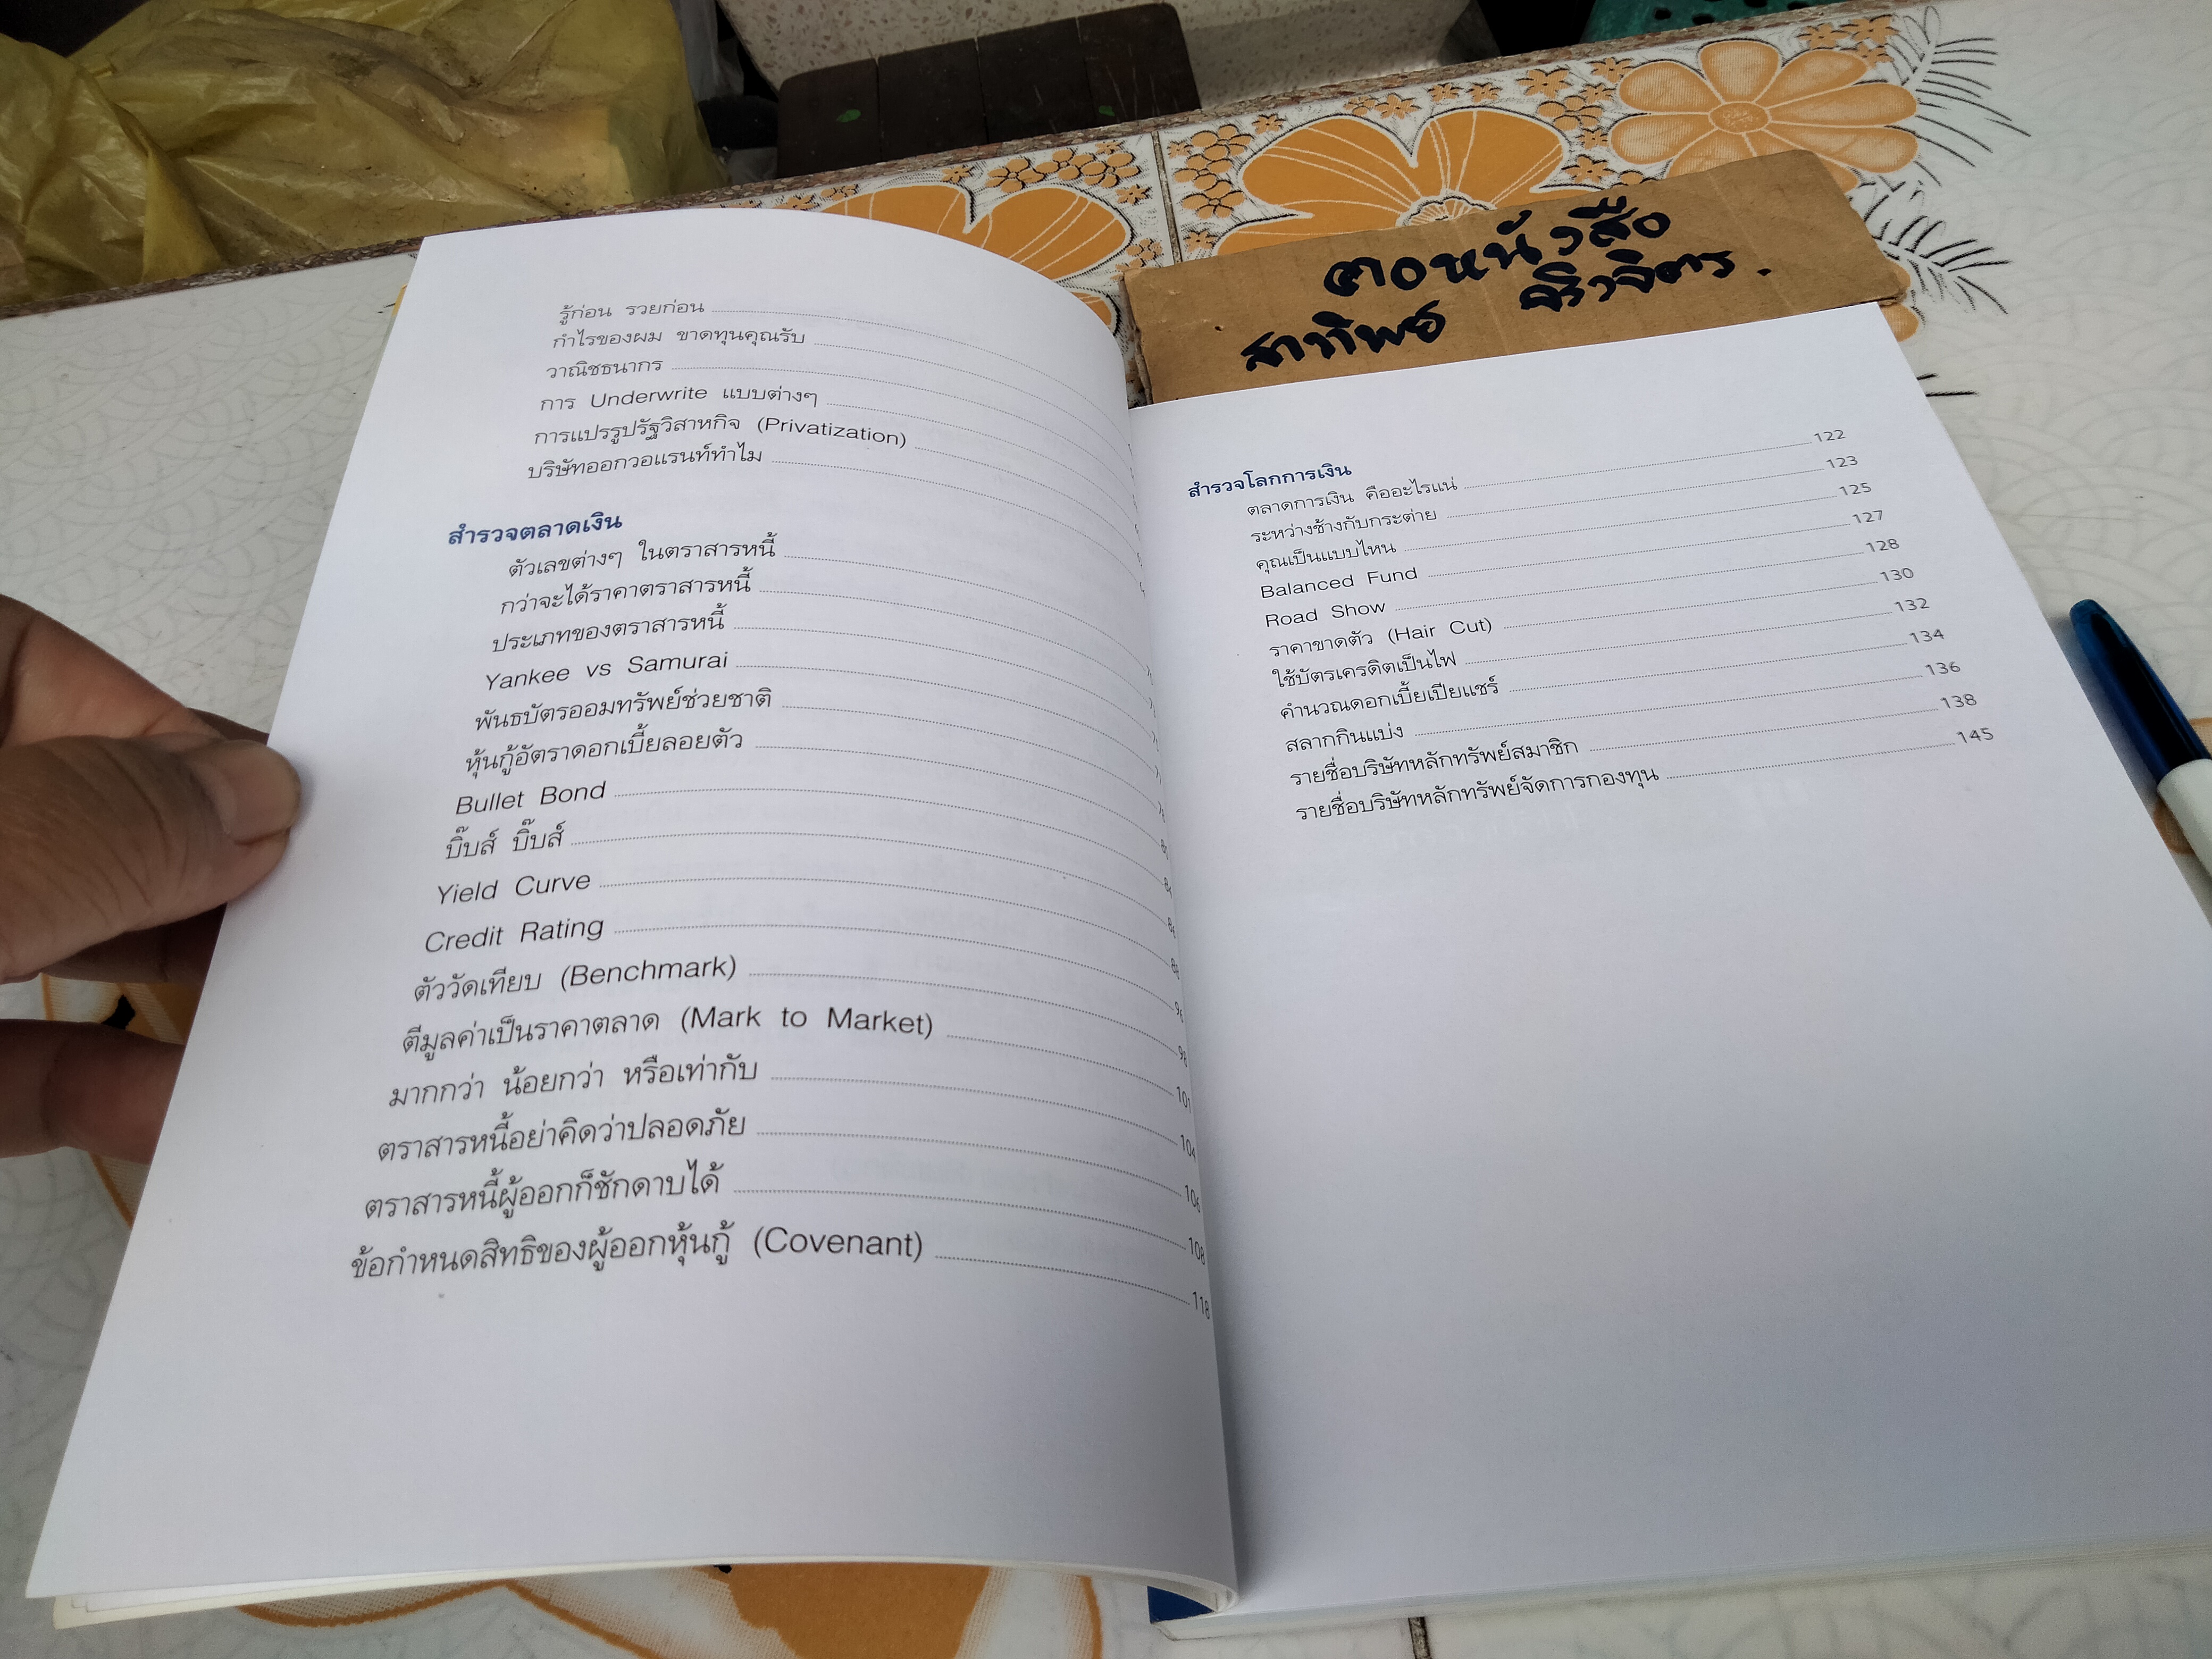 รู้ก่อน รวยก่อน
กำไรของผม ขาดทุนคุณรับ
วาณิชธนากร
การ Underwrite แบบต่างๆ
การแปรรูปรัฐวิสาหกิจ (Privatization)
บริษัทออกวอแรนท์ทำไม
สำรวจตลาดเงิน
ตัวเลขต่างๆ ในตราสารหนี้
กว่าจะได้ราคาตราสารหนี้
ประเภทของตราสารหนี้
Yankee vs Samurai
พันธบัตรออมทรัพย์ช่วยชาติ
หุ้นกู้อัตราดอกเบี้ยลอยตัว
Bullet Bond
บิ๊บส์ บิ๊บส์
Yield Curve
Credit Rating
ตัววัดเทียบ (Benchmark)
ตีมูลค่าเป็นราคาตลาด (Mark to Market)
มากกว่า น้อยกว่า หรือเท่ากับ 101
ตราสารหนี้อย่าคิดว่าปลอดภัย 104
ตราสารหนี้ผู้ออกก็ชักดาบได้ 106
ข้อกำหนดสิทธิของผู้ออกหุ้นกู้ (Covenant) 118
ตอหนังสือ
สาทิพย์
สำรวจโลกการเงิน
ตลาดการเงิน คืออะไรแน่ 122
ระหว่างช้างกับกระต่าย 123
คุณเป็นแบบไหน 125
Balanced Fund 127
Road Show 128
ราคาขาดตัว (Hair Cut) 130
ใช้บัตรเครดิตเป็นไฟ 132
คำนวณดอกเบี้ยเปียแชร์ 134
สลากกินแบ่ง 136
รายชื่อบริษัทหลักทรัพย์สมาชิก 138
รายชื่อบริษัทหลักทรัพย์จัดการกองทุน 145